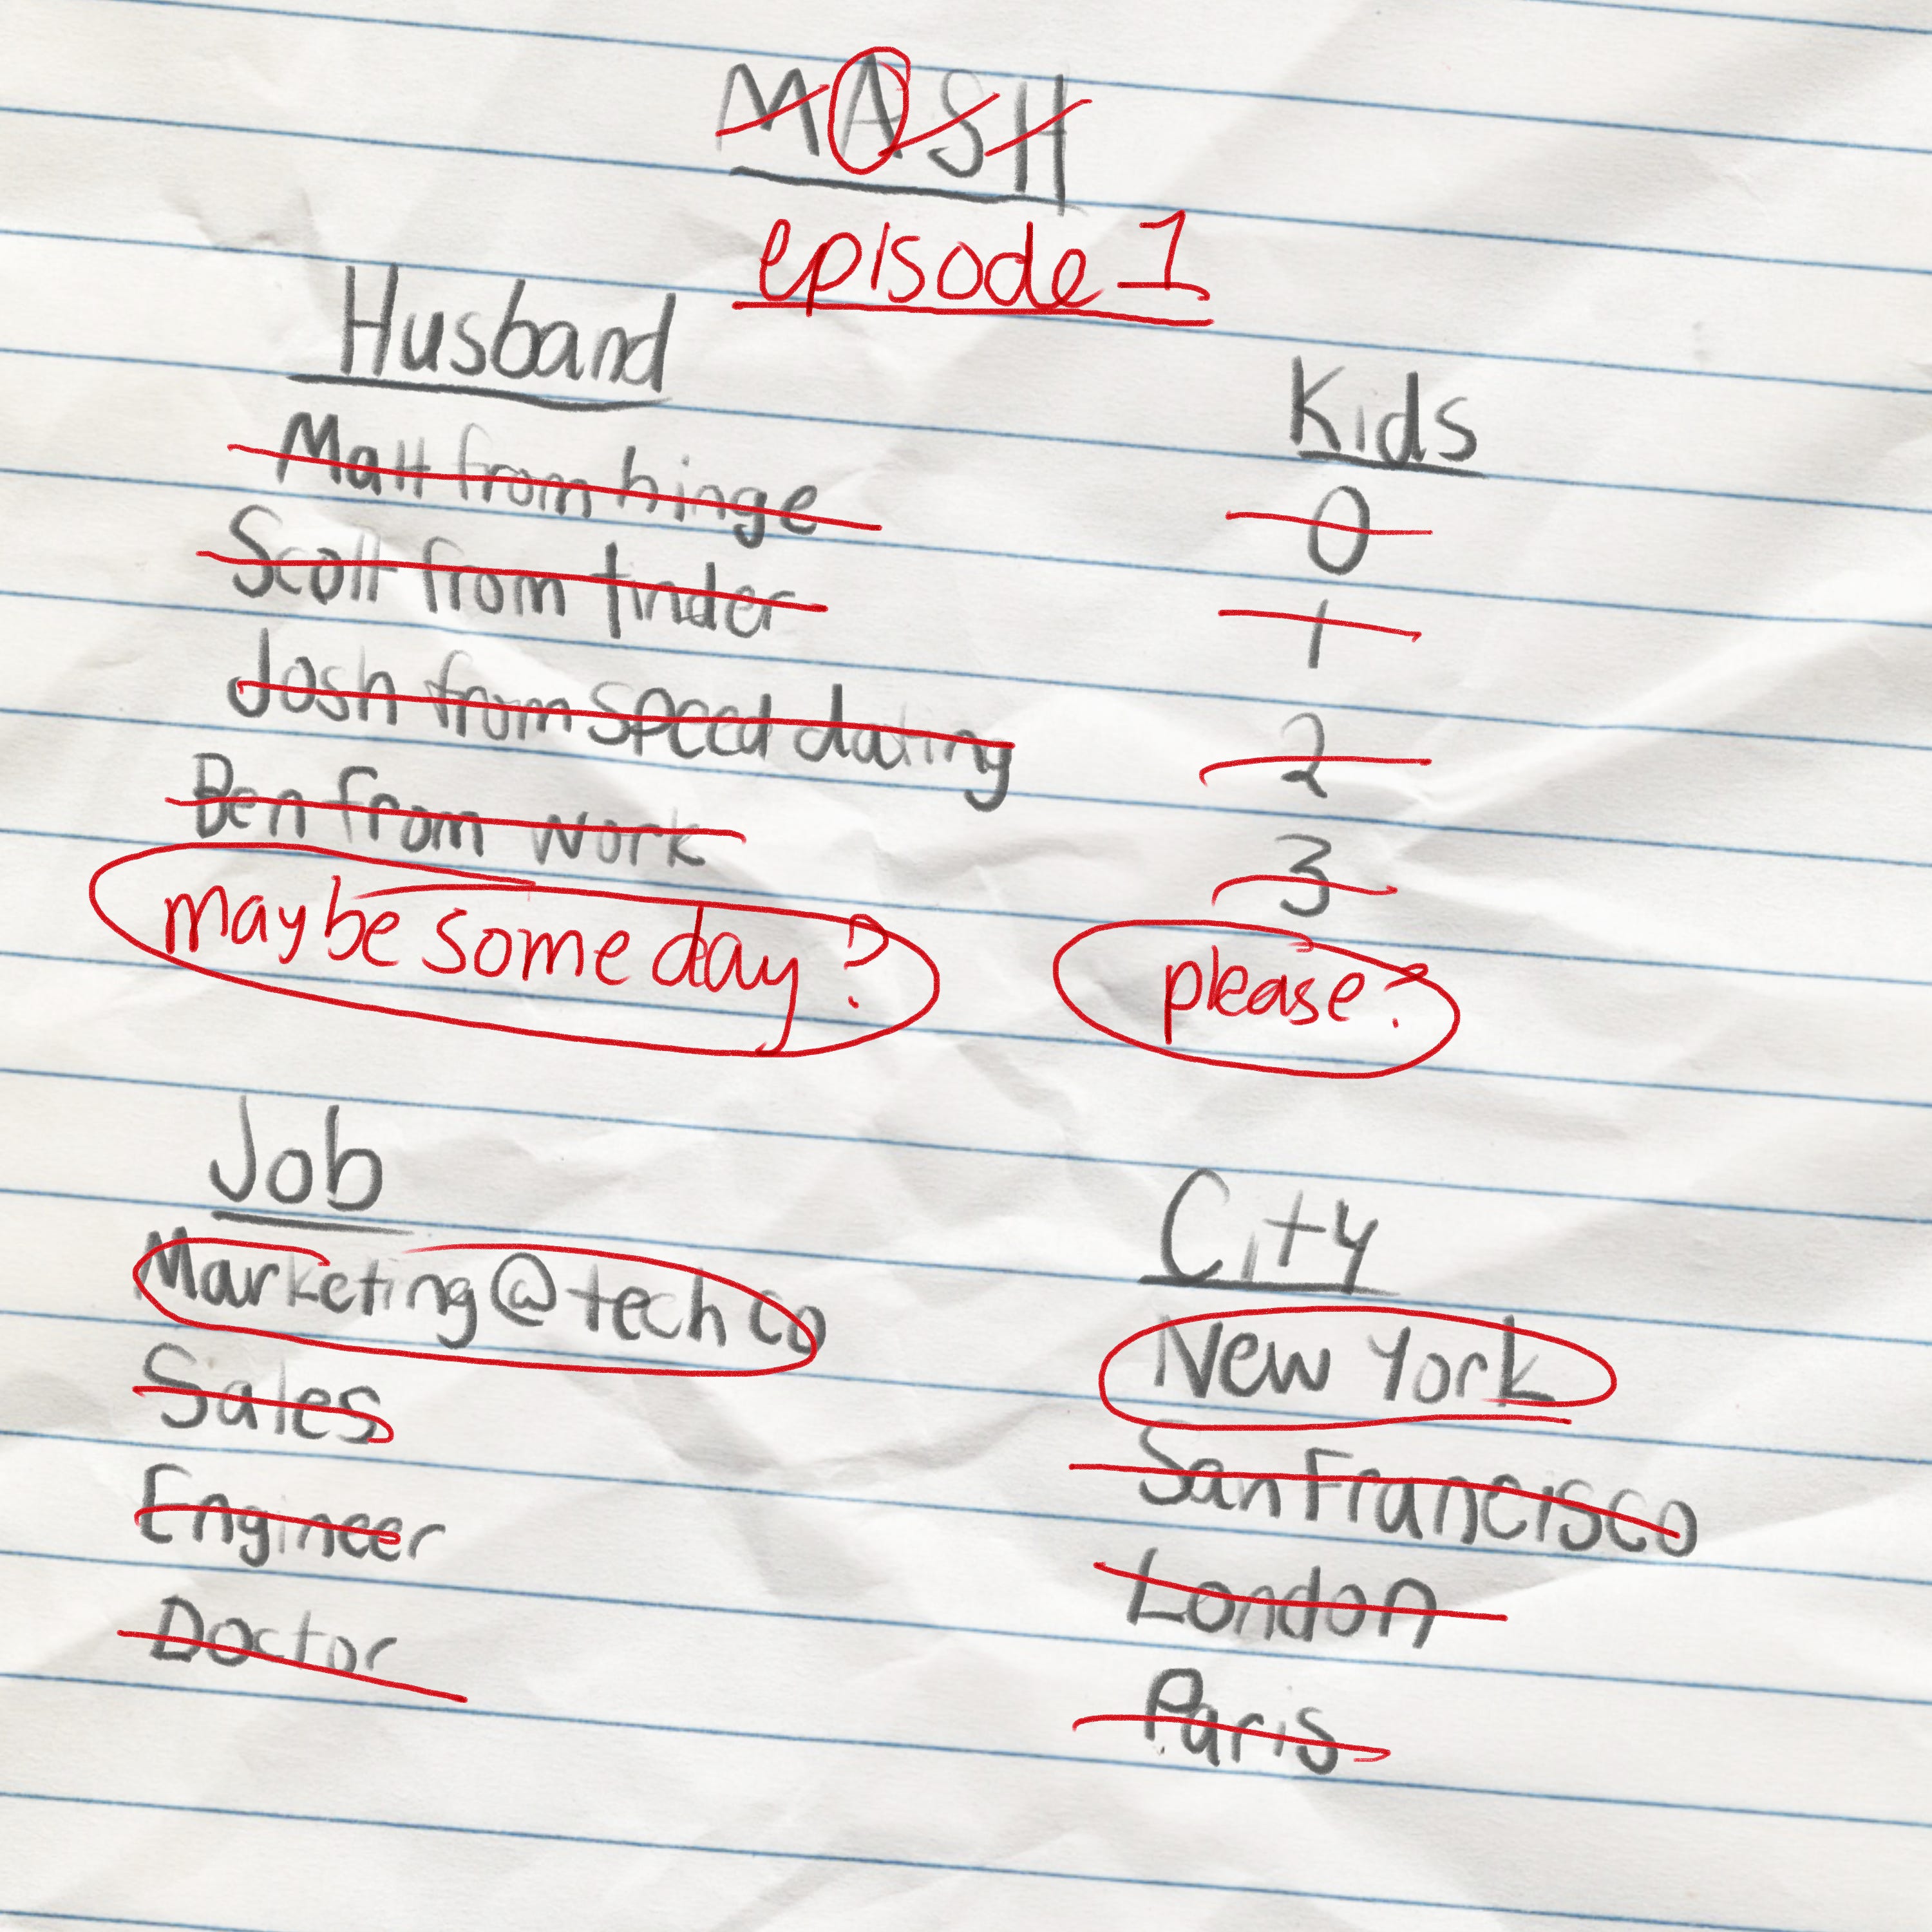 MASH
episode 1
Husband
Matt from hinge
Scott from tinder
Josh from speed dating
Ben from work
maybe some day?
Kids
0
1
2
3
please?
Job
Marketing @ tech co
Sales
Engineer
Doctor
City
New York
San Francisco
London
Paris